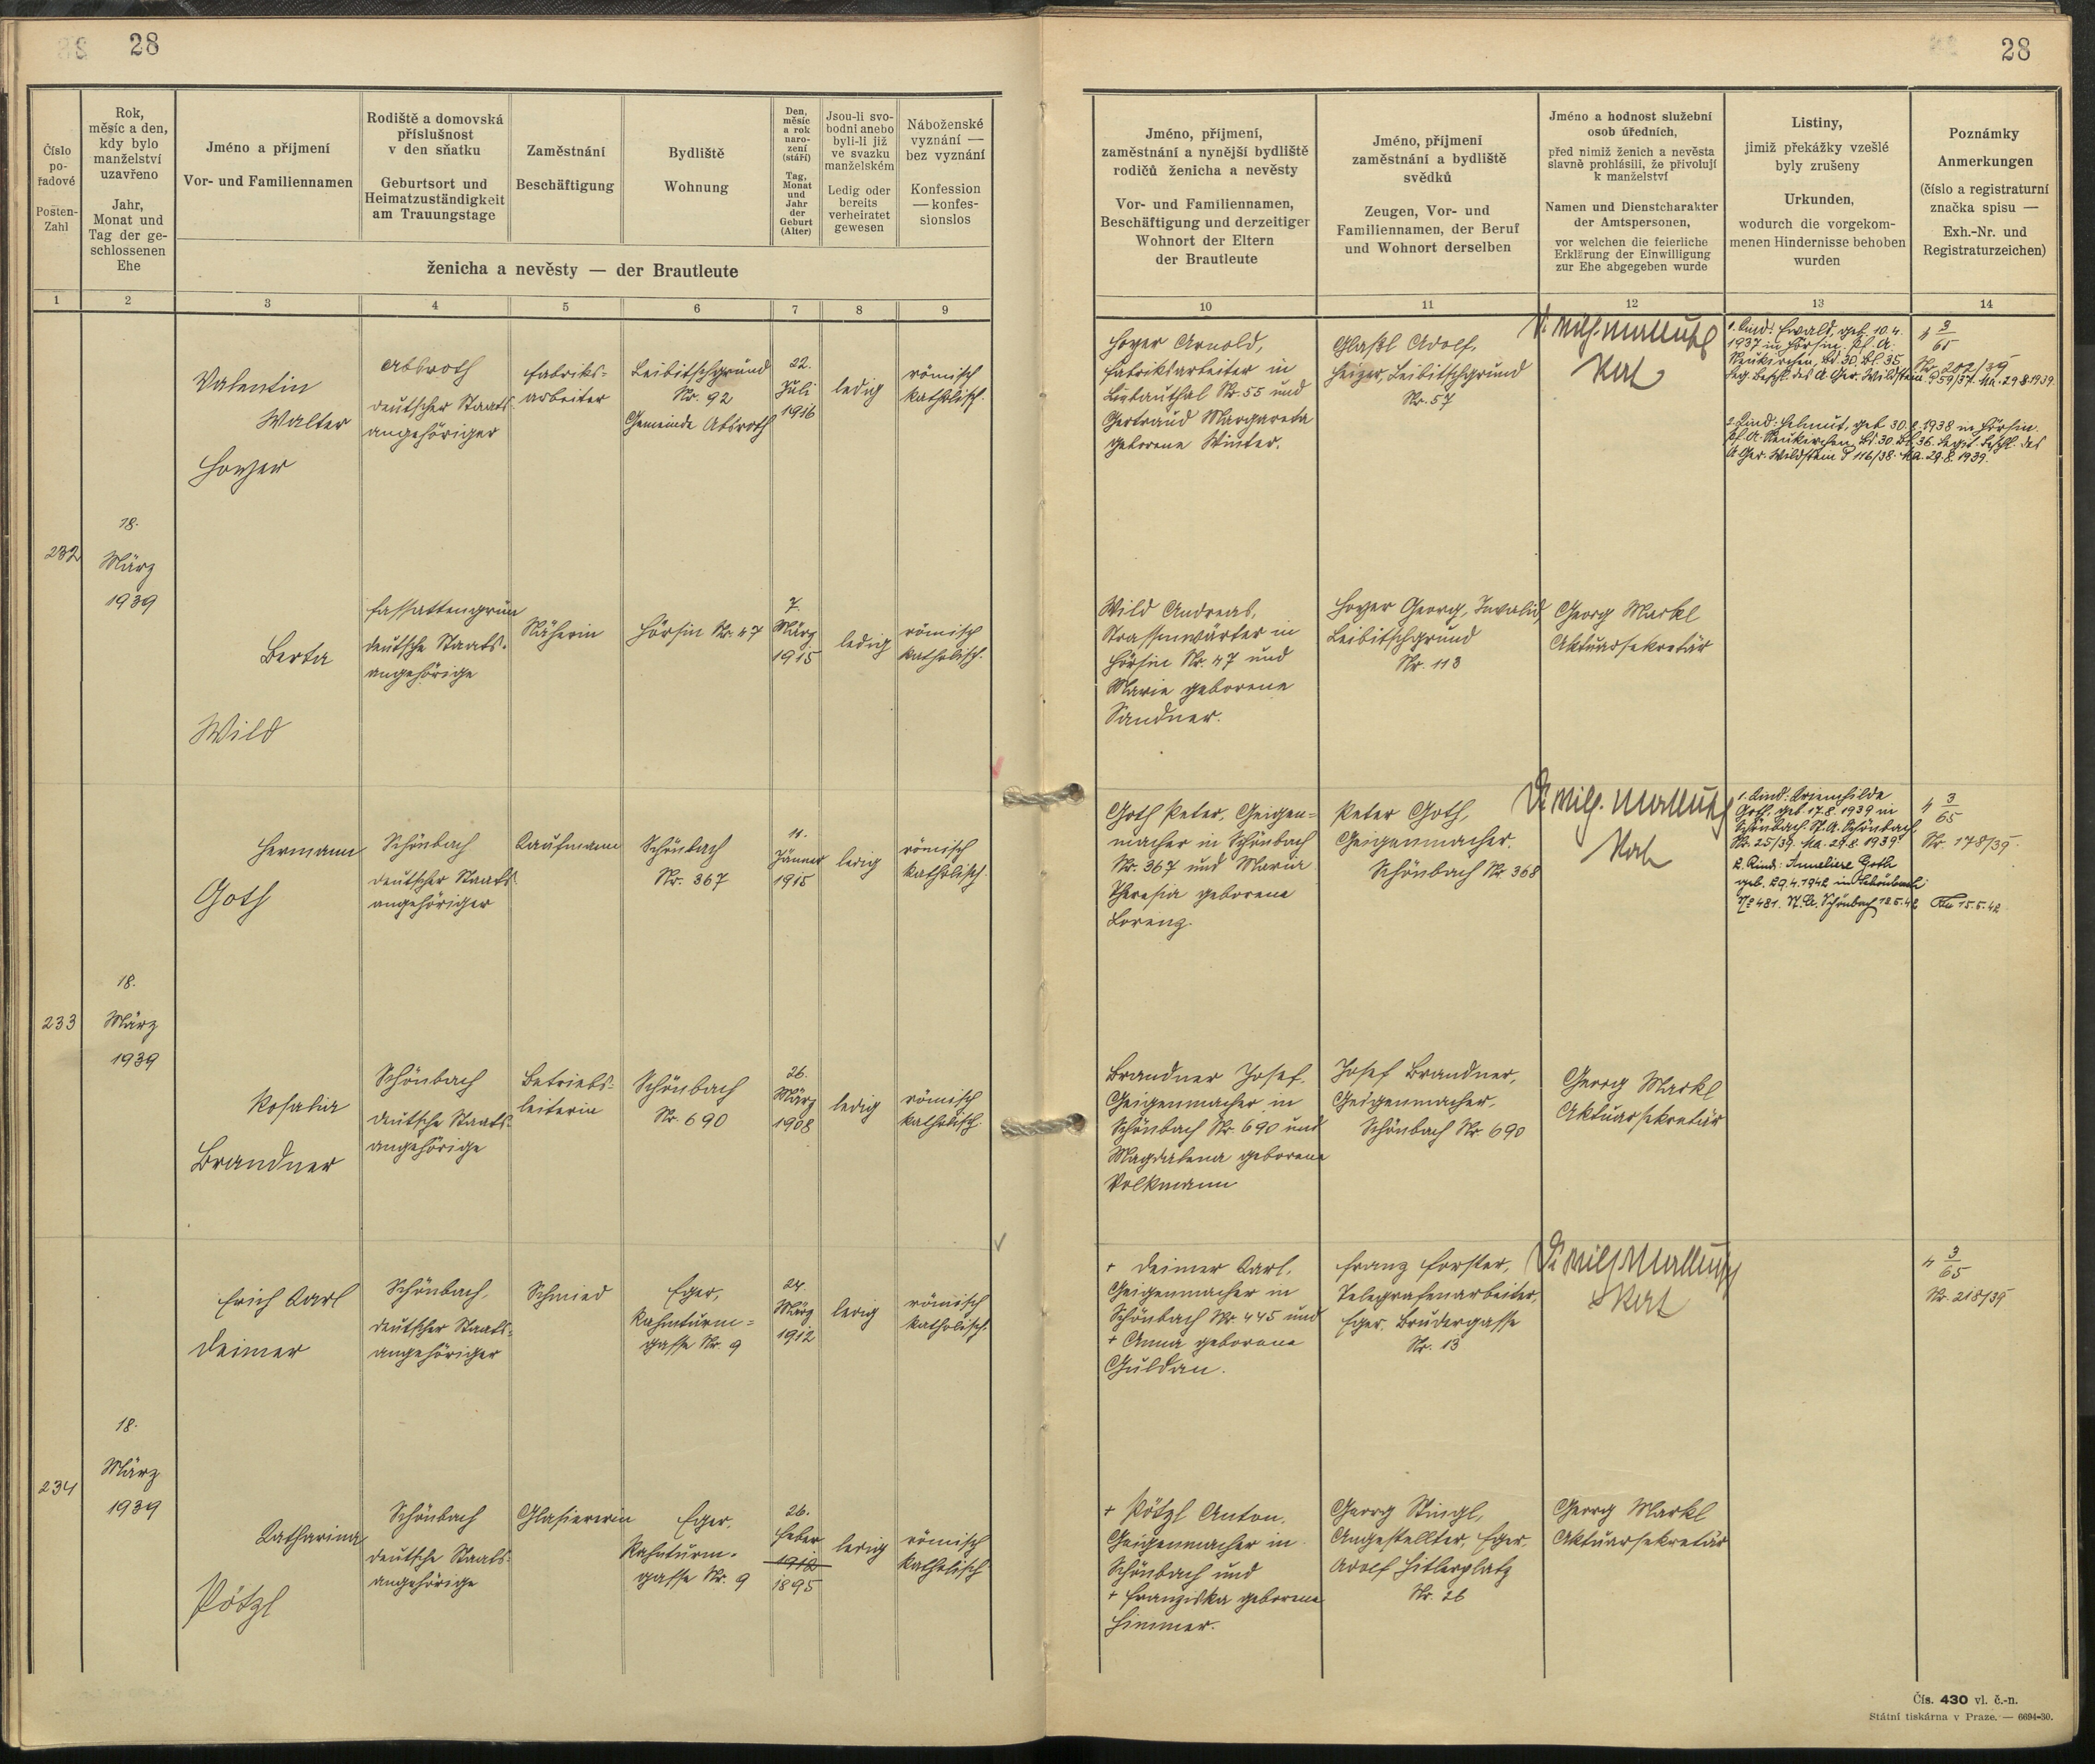 28
28
Číslo
po-
řadové
Posten-
Zahl
Rok,
měsíc a den,
kdy bylo
manželství
uzavřeno
Jahr,
Monat und
Tag der ge-
schlossenen
Ehe
Jméno a příjmení
Vor- und Familiennamen
Rodiště a domovská
příslušnost
v den sňatku
Geburtsort und
Heimatzuständigkeit
am Trauungstage
Zaměstnání
Beschäftigung
Bydliště
Wohnung
Den,
měsíc
a rok
naro-
zení
(stáří)
Tag,
Monat
und
Jahr
der
Geburt
(Alter)
Jsou-li svo-
bodni anebo
byli-li již
ve svazku
manželském
Ledig oder
bereits
verheiratet
gewesen
Náboženské
vyznání —
bez vyznání
Konfession
— konfes-
sionslos
ženicha a nevěsty — der Brautleute
Jméno, příjmení,
zaměstnání a nynější bydliště
rodičů ženicha a nevěsty
Vor- und Familiennamen,
Beschäftigung und derzeitiger
Wohnort der Eltern
der Brautleute
Jméno, příjmení
zaměstnání a bydliště
svědků
Zeugen, Vor- und
Familiennamen, der Beruf
und Wohnort derselben
Jméno a hodnost služební
osob úředních,
před nimiž ženich a nevěsta
slavně prohlásili, že přivolují
k manželství
Namen und Dienstcharakter
der Amtspersonen,
vor welchen die feierliche
Erklärung der Einwilligung
zur Ehe abgegeben wurde
Listiny,
jimiž překážky vzešlé
byly zrušeny
Urkunden,
wodurch die vorgekom-
menen Hindernisse behoben
wurden
Poznámky
Anmerkungen
(číslo a registraturní
značka spisu —
Exh.-Nr. und
Registraturzeichen)
1 2 3 4 5 6 7 8 9 10 11 12 13 14
232
18.
März
1939
Valentin
Walter
Hoyer
Absroth
deutscher Staats-
angehöriger
Fabriks-
arbeiter
Leibitschgrund
Nr. 92
Gemeinde Absroth
22.
Juli
1916
ledig
römisch
katholisch.
Hoyer Arnold,
Fabriksarbeiter in
Liebauthal Nr. 55 und
Gertraud Margareta
geborene Winter.
Glaßl Adolf,
Heizer, Leibitschgrund
Nr. 57
1. Kind: Ewald, geb. 10.4.
1937 in Hörsin. Pf. A.
Neukirchen, Bd 30. Bl 35
Leg. Beschl. des A. Ger. Wildstein P 59/37. Ma. 29.8.1939.
2. Kind: Helmut, geb 30.8.1938 in Hörsin.
Pf. A. Neukirchen Bd. 30. Bl. 36. Legit. Beschl. des
A. Ger. Wildstein P 116/38. Ma. 29.8.1939.
3
65
Nr. 202/39
Berta
Wild
Fassattengrün
deutsche Staats-
angehörige
Näherin
Hörsin Nr. 47
7.
März
1915
ledig
römisch
katholisch.
Wild Andreas,
Strassenwärter in
Hörsin Nr. 47 und
Marie geborene
Sandner.
Hoyer Georg, Invalid,
Leibitschgrund
Nr. 113
Georg Markl
Aktuarsekretär
233
18.
März
1939
Hermann
Goth
Schönbach
deutscher Staats-
angehöriger
Kaufmann
Schönbach
Nr. 367
11.
Jänner
1915
ledig
römisch
katholisch.
Goth Peter, Geigen-
macher in Schönbach
Nr. 367 und Maria
Theresia geborene
Lorenz.
Peter Goth,
Geigenmacher.
Schönbach Nr 368
1. Kind: Kriemhilde
Goth, geb. 17.8.1939 in
Schönbach. St. A. Schönbach,
Nr. 25/39. Ma. 29.8.1939.
2. Kind: Anneliese Goth
geb. 29.4.1942 in Schönbach
No 481. St. A. Schönbach 12.5.42
3
65
Nr. 178/39.
15.5.42
Rosalia
Brandner
Schönbach
deutsche Staats-
angehörige
Betriebs-
leiterin
Schönbach
Nr. 690
26.
März
1908
ledig
römisch
katholisch.
Brandner Josef,
Geigenmacher in
Schönbach Nr. 690 und
Magdalena geborene
Volkmann
Josef Brandner,
Geigenmacher,
Schönbach Nr. 690
Georg Markl
Aktuarsekretär
234
18.
März
1939
Erich Karl
Deimer
Schönbach,
deutscher Staats-
angehöriger
Schmied
Eger,
Rahmturm-
gasse Nr. 9
24.
März
1912
ledig
römisch
katholisch.
+ Deimer Karl,
Geigenmacher in
Schönbach Nr. 445 und
+ Anna geborene
Güldan.
Franz Forster,
Telegrafenarbeiter,
Eger. Brudergasse
Nr. 13
3
65
Nr. 218/39
Katharina
Pötzl
Schönbach
deutsche Staats-
angehörige
Glasiererin
Eger.
Rahmturm-
gasse Nr. 9
26.
Feber
1912
1895
ledig
römisch
katholisch
+ Pötzl Anton,
Geigenmacher in
Schönbach und
+ Franziska geborene
Himmer.
Georg Stingl,
Angestellter, Eger,
Adolf Hitlerplatz
Nr. 26
Georg Markl
Aktuarsekretär
Čís. 430 vl. č.-n.
Státní tiskárna v Praze. — 6694-30.